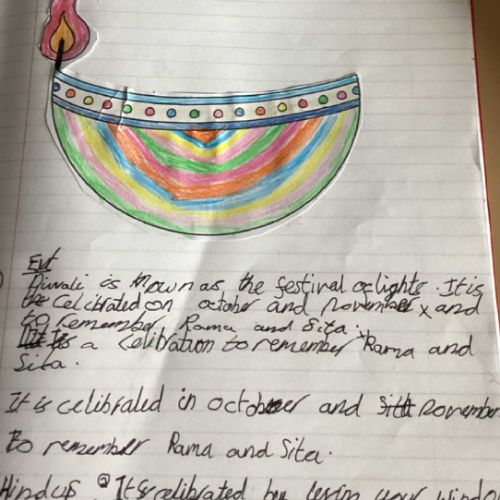 Ext
Diwali is known as the festival of lights. It is
the celibrated on october and november x and
to remember Rama and Sita.
It is a celibration to remember Rama and
Sita.
It is celibrated in october and november
to remember Rama and Sita.
Hindus It is celibrated by your